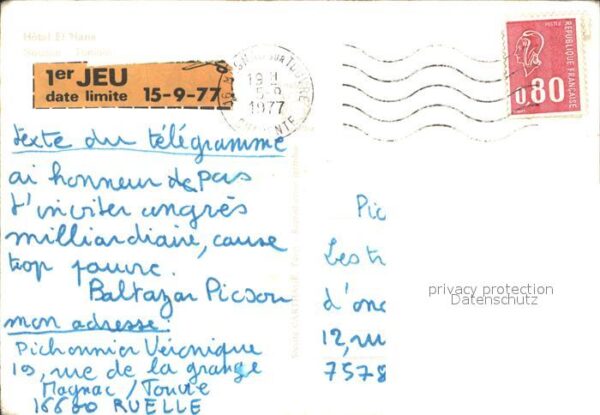 Hôtel El Hana
Sousse - Tunisie
1er JEU
date limite 15-9-77
19 H
5-9
1977
CHARENTE
POSTES
RÉPUBLIQUE FRANÇAISE
0,80
texte du télégramme
ai honneur de pas
t'inviter congrès
milliardiaire, cause
trop pauvre.
Baltazar Picsou
mon adresse:
Pichonnier Véronique
19, rue de la grange
Magnac/Touvre
16600 RUELLE
Pic
Les tr
d'on
12, ru
7578
privacy protection
Datenschutz